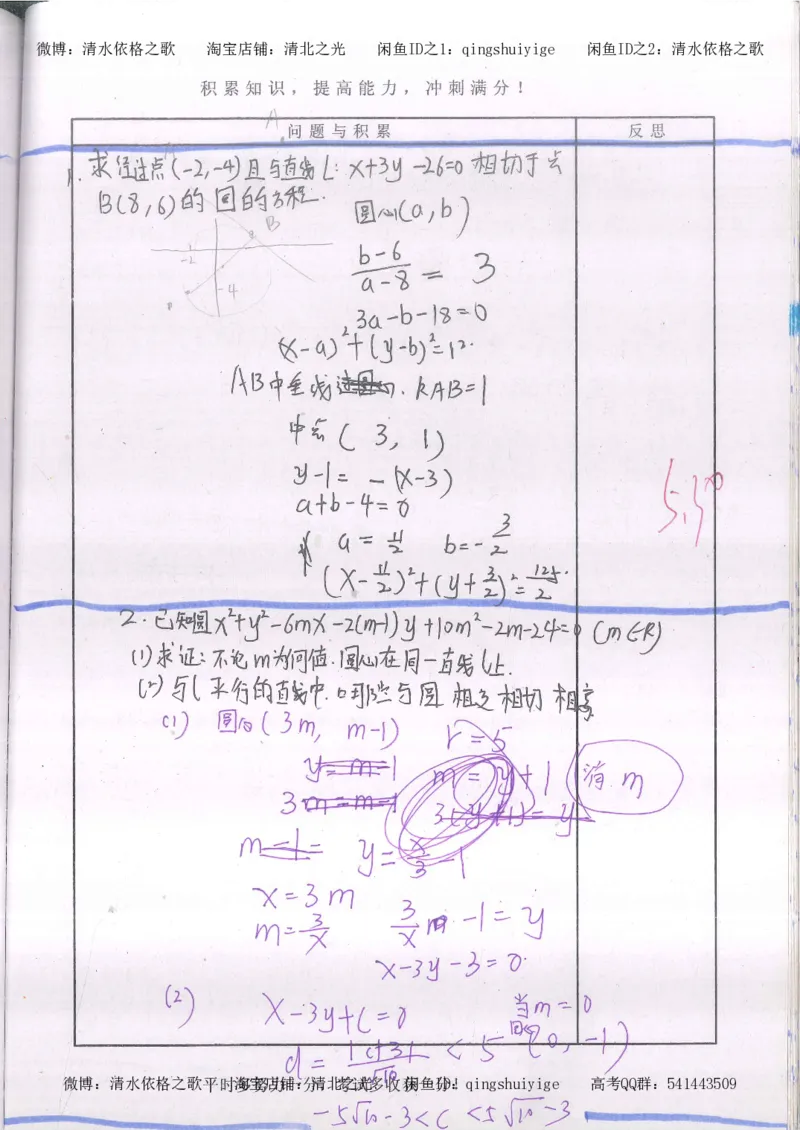 微博：清水依格之歌 淘宝店铺：清北之光 闲鱼ID之1：qingshuiyige 闲鱼ID之2：清水依格之歌
积累知识，提高能力，冲刺满分！
问题与积累 反思
1. 求经过点(-2,-4)且与直线l: x+3y-26=0 相切于点
B(8,6)的圆的方程.
圆心(a,b)
B
-2
-4
(b-6)/(a-8) = 3
3a-b-18=0
(x-a)²+(y-b)²=r².
AB中垂线 . kAB=1
中点 (3, 1)
y-1= -(x-3)
a+b-4=0
a=11/2 b=-3/2
(x-11/2)²+(y+3/2)²=125/2.
2. 已知圆x²+y²-6mx-2(m-1)y+10m²-2m-24=0 (m∈R)
(1)求证:不论m为何值.圆心在同一直线l上.
(2)与l平行的直线中.哪些与圆 相交 相切 相离
(1) 圆心(3m, m-1) r=5
y=m-1 m=y+1 消m
3m=m-1 3(y+1)=y
m-1= y=x/3-1
x=3m
m=3/x 3/x m -1=y
x-3y-3=0.
(2) x-3y+c=0 当m=0
圆心(0,-1)
d=|c+3|/√10 < 5
微博：清水依格之歌 淘宝店铺：清北之光 闲鱼ID之1：qingshuiyige 高考QQ群：541443509
-5√10-3<c<5√10-3